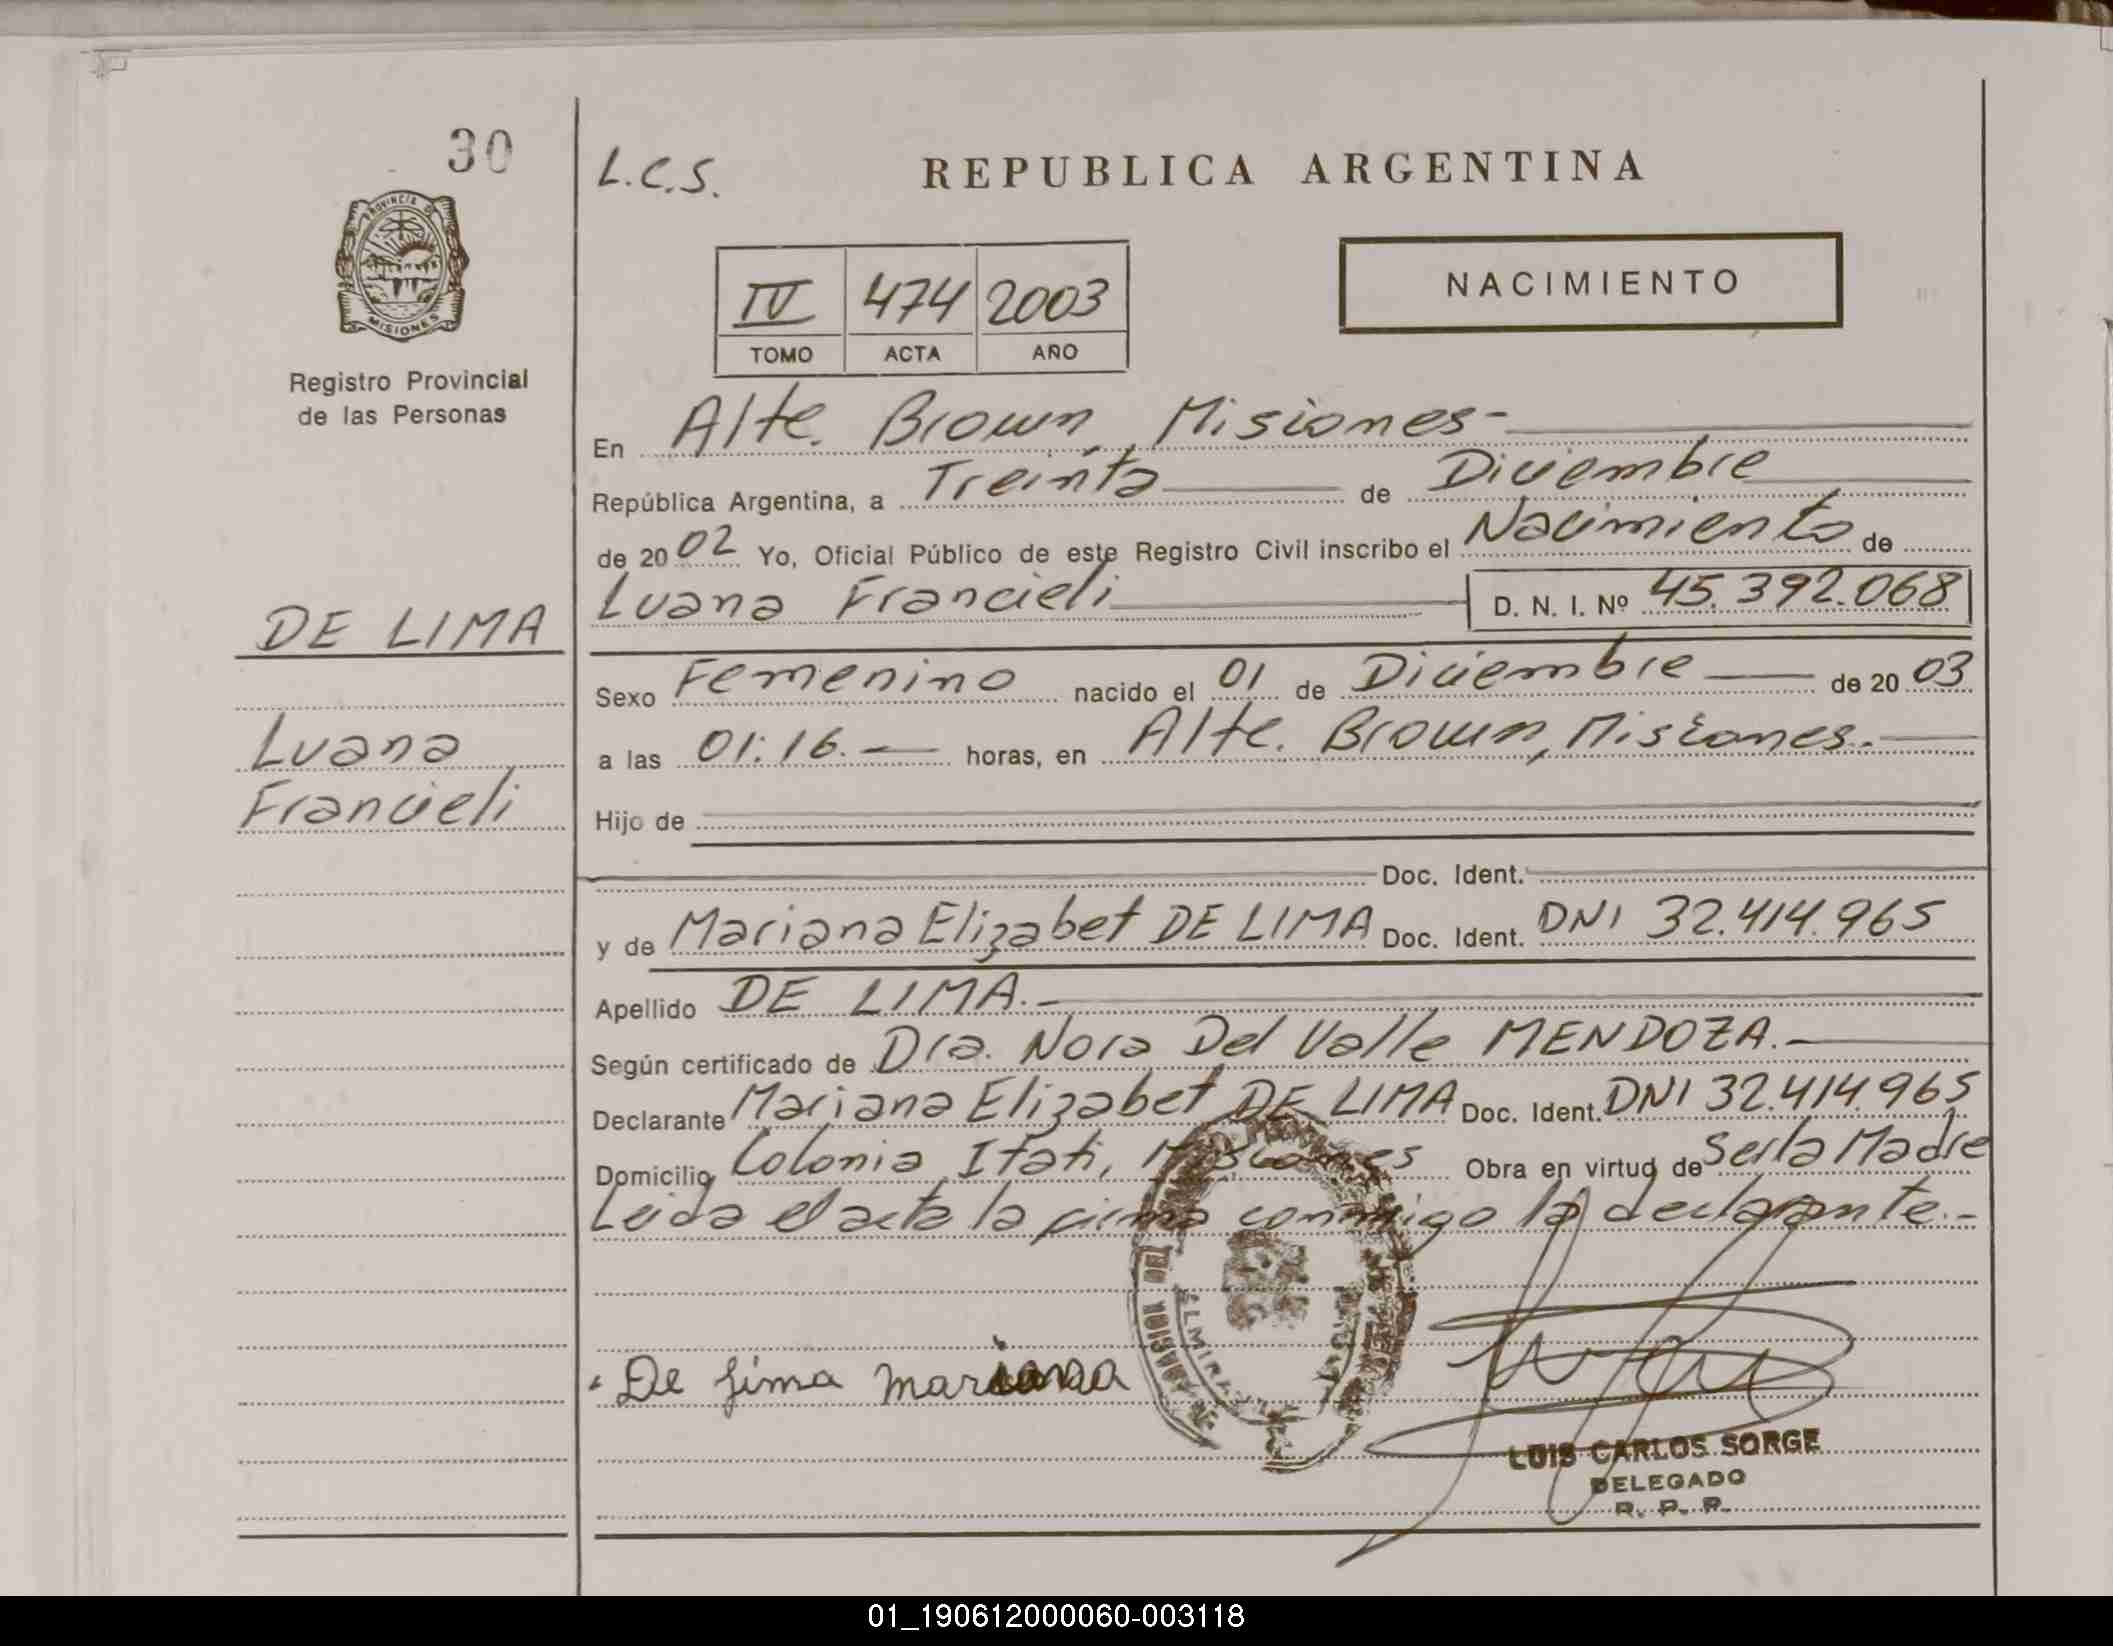 30
L.C.S.
REPUBLICA ARGENTINA
PROVINCIA DE
MISIONES
Registro Provincial
de las Personas
IV 474 2003
TOMO ACTA AÑO
NACIMIENTO
En Alte. Brown, Misiones-
República Argentina, a Treinta de Diciembre
de 2002 Yo, Oficial Público de este Registro Civil inscribo el Nacimiento de
Luana Francieli D. N. I. Nº 45.392.068
DE LIMA
Luana
Francieli
Sexo Femenino nacido el 01 de Diciembre de 2003
a las 01:16.- horas, en Alte. Brown, Misiones.-
Hijo de
Doc. Ident.
y de Mariana Elizabet DE LIMA Doc. Ident. DNI 32.414.965
Apellido DE LIMA.-
Según certificado de Dra. Nora Del Valle MENDOZA.-
Declarante Mariana Elizabet DE LIMA Doc. Ident. DNI 32.414.965
Domicilio Colonia Itati, Misiones Obra en virtud de Ser la Madre
Leida el acta la firma conmigo la declarante.-
De Lima mariana
LUIS CARLOS SORGE
DELEGADO
R. P. P.
01_190612000060-003118